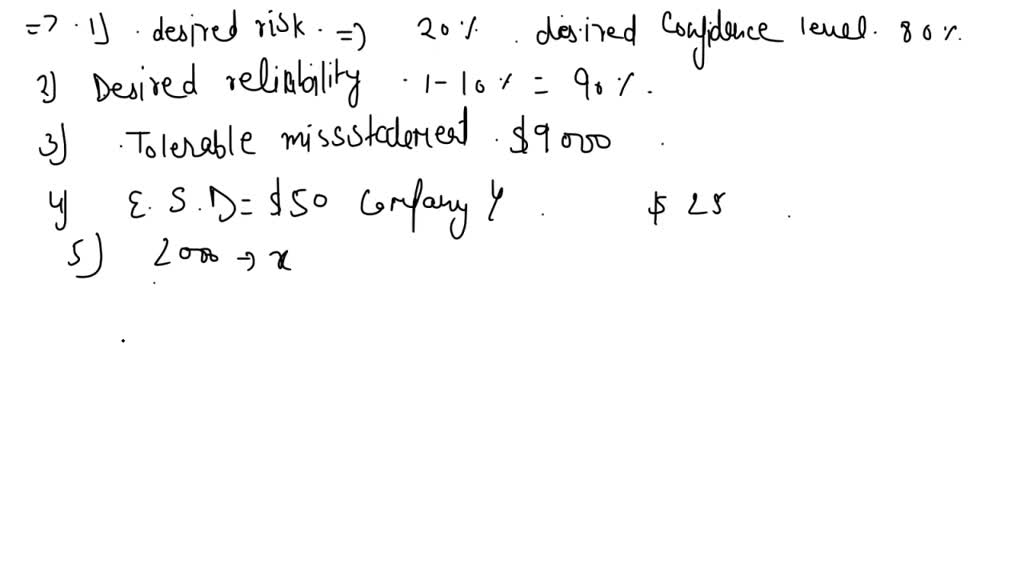 => . 1) . desired risk . => 20 % . desired Confidence level . 80 %.
2) Desired reliability . 1 - 10 % = 90 %.
3) . Tolerable missstadement . $9000 .
4) E. S. D = $50 Company Y . $ 25 .
5) 2000 → x